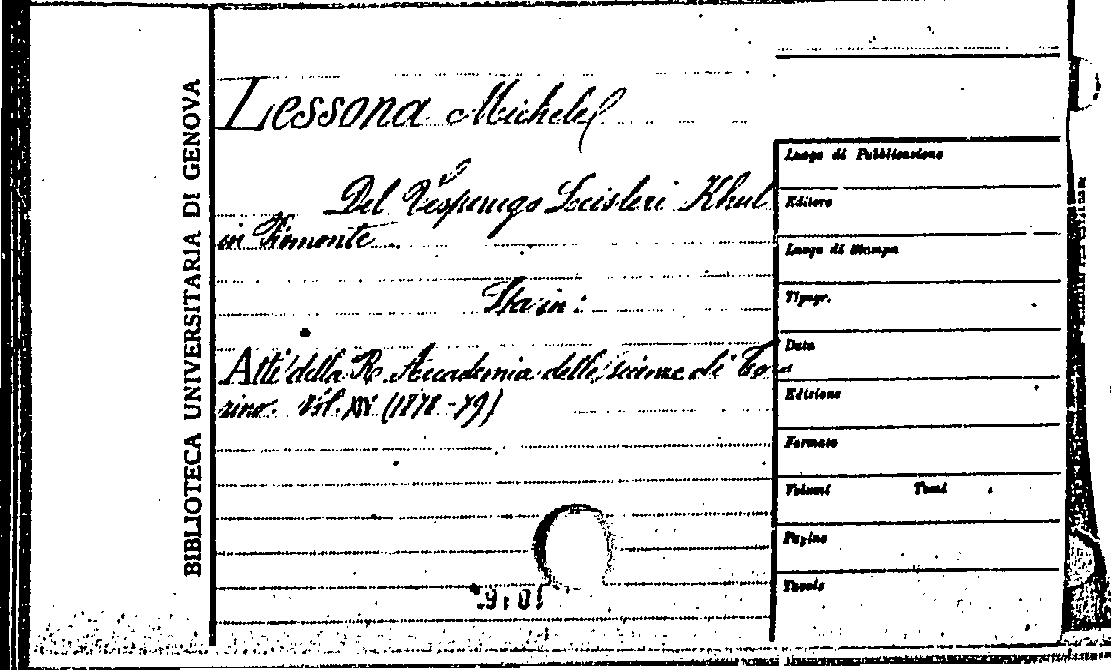 BIBLIOTECA UNIVERSITARIA DI GENOVA
Lessona Michele
Del Vesperugo Leisleri Khul
in Piemonte
Sta in:
Atti della R. Accademia delle scienze di To=
rino. Vol. XIV (1878-79)
Luogo di Pubblicazione
Editore
Luogo di Stampa
Tipogr.
Data
Edizione
Formato
Volumi Tomi
Pagine
Tavole